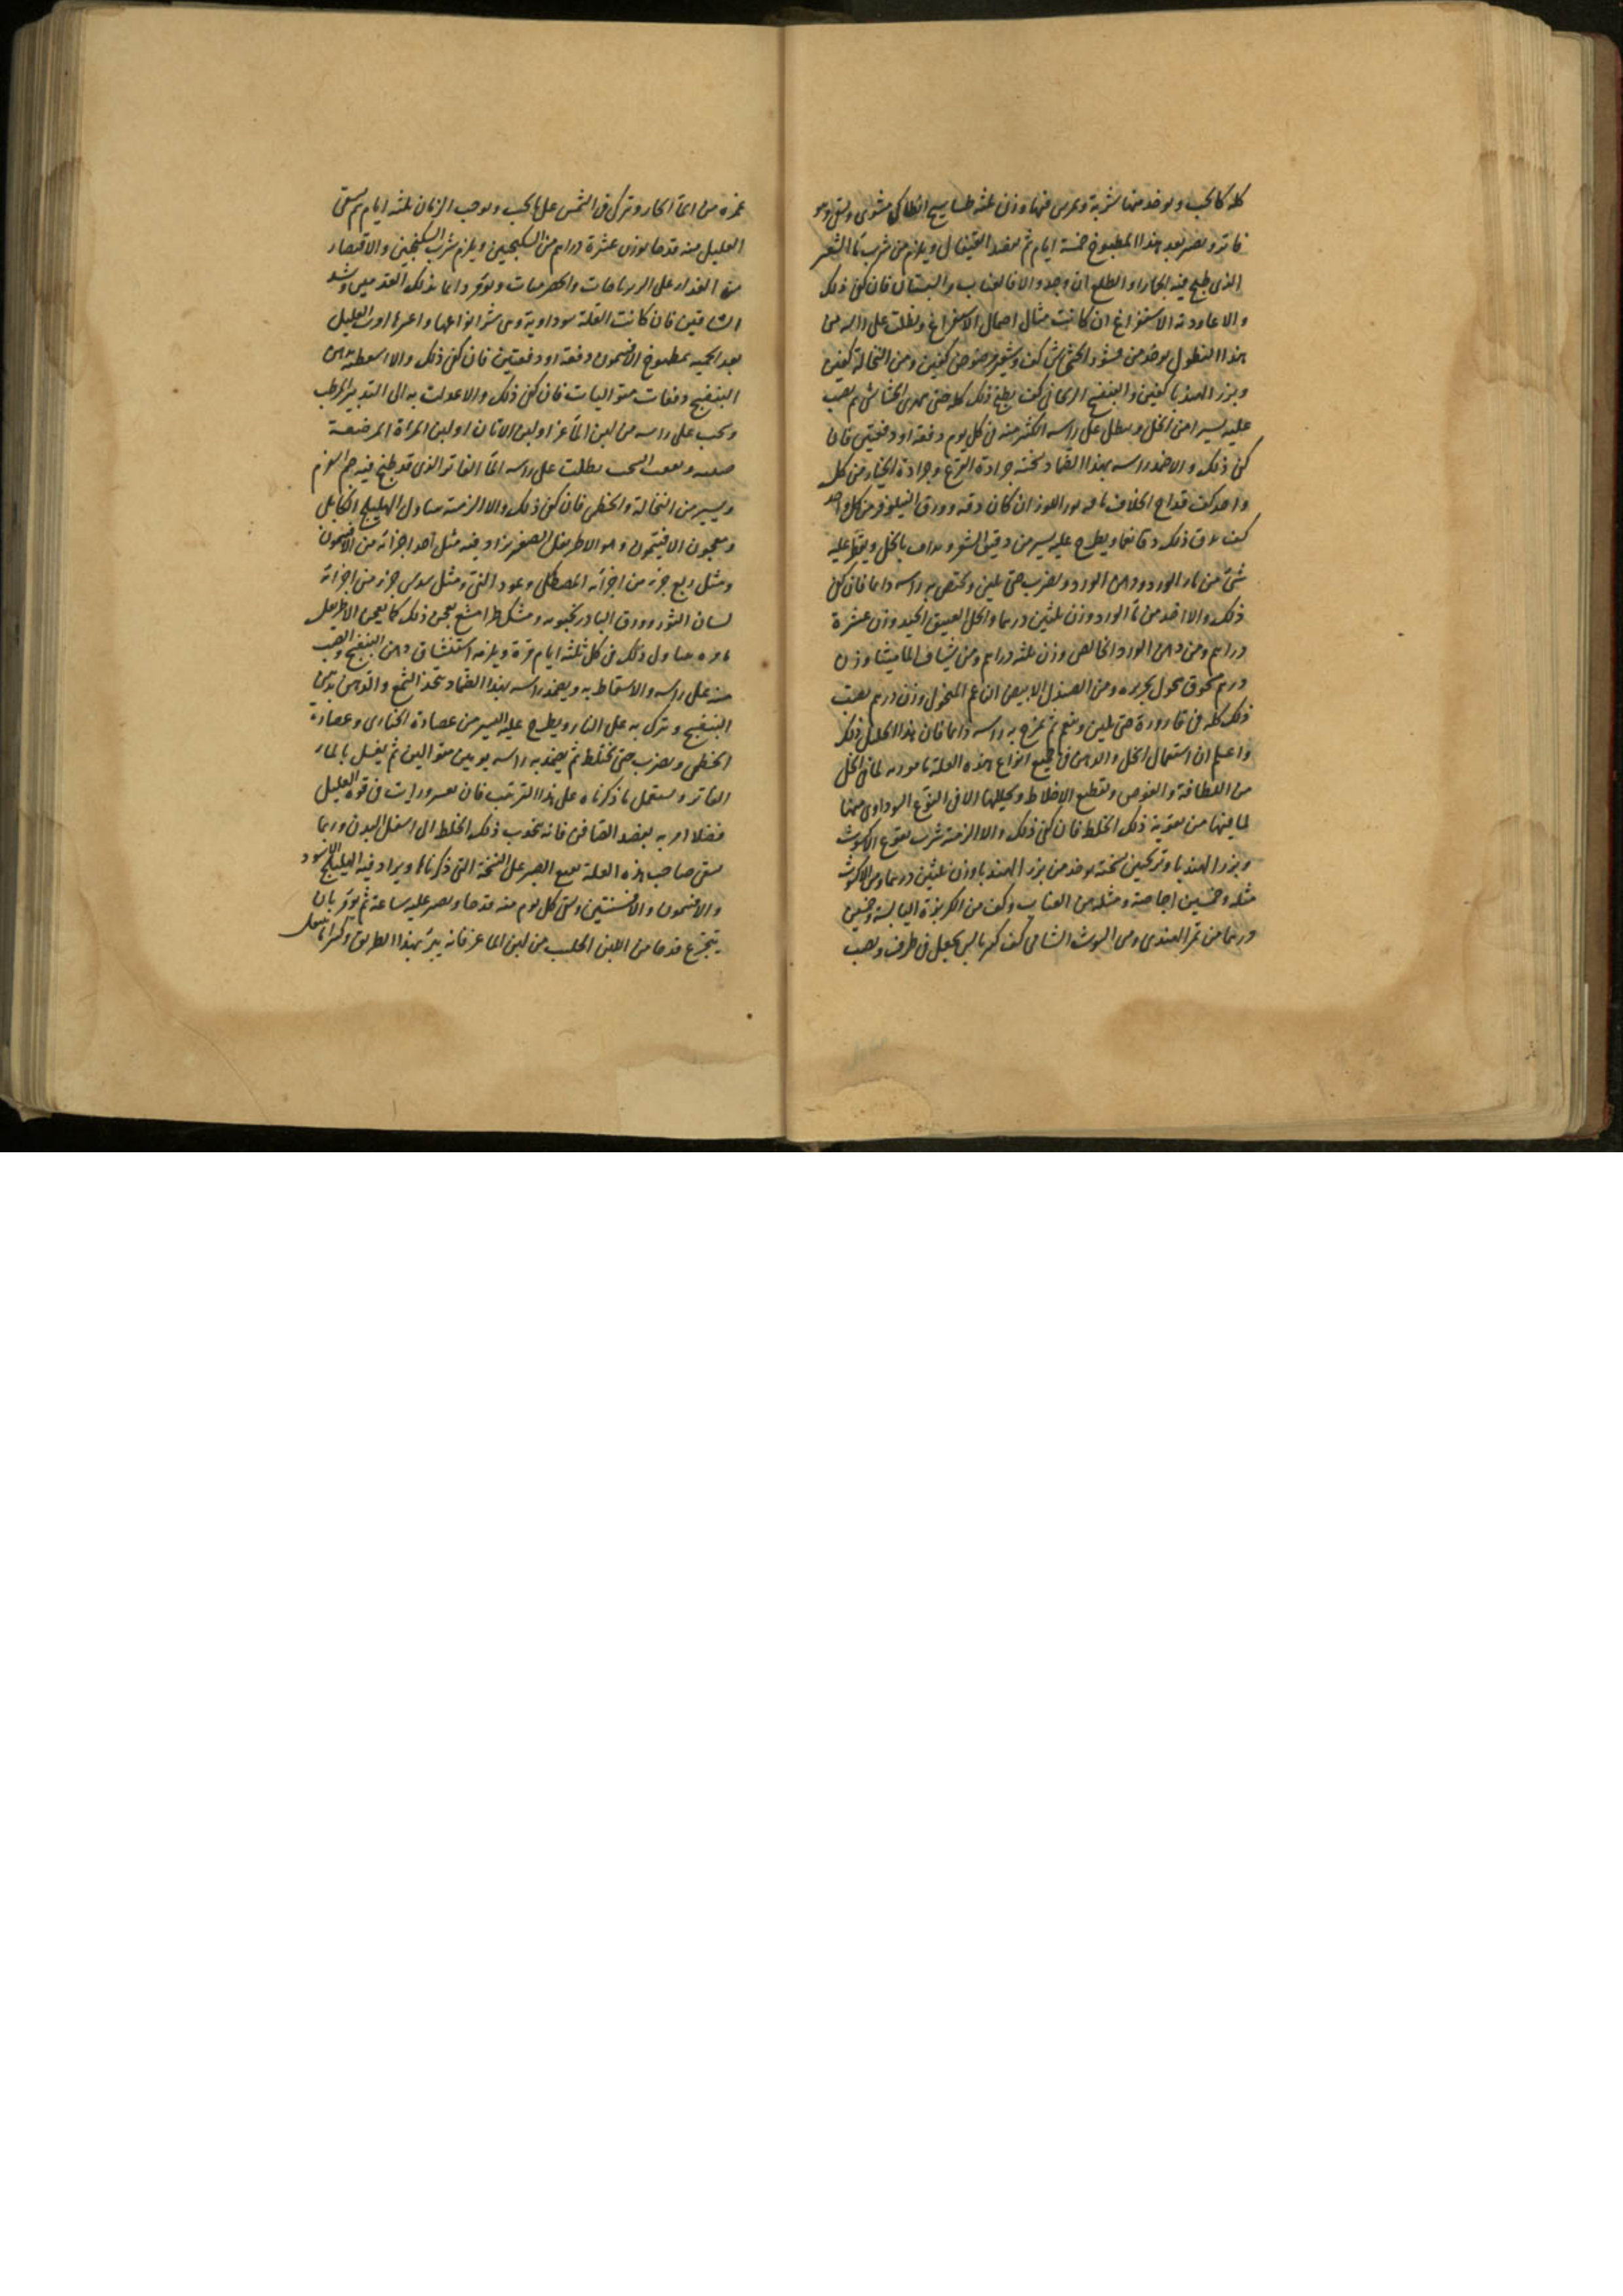 كله كالحب ويوخذ منها شربة ويمرس فيها وزن ثلثه طساسيج انطاكي مشوى ويسقى وهو
فاتر ويصبر بعد هذا المطبوخ خمسة ايام ثم يفصد القيفال ويلزم من شرب ماء الشعير
الذي طبخ فيه الجمار او الطلع ان وجد والا فالعناب والسبستان فان كفى ذلك
والا عاودته الاستفراغ ان كانت احتمال الاستفراغ ونطلت على راسه من
هذا النطول يوخذ من قشور الخشخاش كف وشعير مرضوض كفين ومن النخالة كفين
وبزر الهندبا كفين والبنفسج الريحاني كف يطبخ ذلك كله حتى يتهرى الخشخاش ثم يصب
عليه يسيرا من الخل وينطل على راسه اكثر منه في كل يوم دفعة او دفعتين فان
كفى ذلك والا ضمد راسه بهذا الضماد نسخته جرادة القرع وجرادة الخيار من كل
واحد كف قداح الخلاف ان كان وقته وورق النيلوفر من كل واحد
كف يدق ذلك دقا ناعما ويطرح عليه يسير من دقيق الشعير ويداف بالخل ويقطر عليه
شئ من ماء الورد ودهن الورد ويضرب حتى يلين ويختص به راسه دايما فان كفى
ذلك والا اخذ من ماء الورد وزن ثلثين درهما والخل العتيق الجيد وزن عشرة
دراهم ومن دهن الورد الخالص وزن ثلثه دراهم ومن شياف الماميثا وزن
درهم مسحوق منخول بحريره ومن الصندل الابيض الناعم المنخول وزن درهم يصب
ذلك كله في قارورة حتى يلين وينعم ثم يمزج به راسه دايما فان هذا يحلل ذلك
واعلم ان استعمال الخل والدهن في جميع انواع هذه العلة مامور به لما في الخل
من اللطافة والغوص وتقطيع الاخلاط وتحليلها الا في النوع السوداوى منها
لما فيها من تقوية ذلك الخلط فان كفى ذلك والا الزمته شرب نقوع الاكشوث
وبزر الهندبا وترنجبين نسخته يوخذ من بزر الهندبا وزن ثلثين درهما ومن الاكشوث
مثله وخمسين اجاصة ومثله من العناب وكف من الكزبرة اليابسة وخمسين
درهما من تمر الهندى ومن التوث الشامى كف كبير يابس يجعل في ظرف ويصب
غمره من الماء الحار ويترك في الشمس على ما يجب ويوجب الزمان ثلثه ايام ثم يسقى
العليل منه قدحا بوزن عشرة دراهم من السكنجبين ويلزم شرب السكنجبين والاقتصار
من الغذاء على الزيرباجات والحصرميات ويؤمر دايما بدلك القدمين وشد
الساقين فان كانت العلة سوداوية وهى شر انواعها واعسرها امرت العليل
بعد الحميه بمطبوخ الافتيمون دفعة او دفعتين فان كفى ذلك والا اسعطه بدهن
البنفسج دفعات متواليات فان كفى ذلك والا عدلت به الى التدبير المرطب
وتحلب على راسه من لبن الماعز او لبن الاتان او لبن المراة المرضعة
الحلب نطلت على راسه الماء الفاتر الذى قد طبخ فيه
ويسير من النخالة والخطمى فان كفى ذلك والا الزمته تناول الهليلج الكابلى
ومعجون الافتيمون وهو الاطريفل الصغير يزاد فيه مثل احد اجزائه من الافتيمون
ومثل ربع جزء من اجزائه المصطكى وعود النى ومثل سدس جزء من اجزائه
لسان الثور وورق البادرنجبويه ومشكطرامشيع يعجن ذلك كما يعجن الاطريفل
تامره بتناول ذلك في كل ثلثه ايام مرة ويلزمه استنشاق دهن البنفسج والصب
منه على راسه والاسعاط به ويضمد راسه بهذا الضماد يتخذ الشمع والدهن بدهن
البنفسج ويترك به على النار ويطرح عليه اليسير من عصارة الخبازى وعصارة
الخطمى ويضرب حتى يختلط ثم يضمد به راسه يومين متواليين ثم يغسل بالماء
الفاتر ويستعمل ما ذكرناه على هذا الترتيب فان تعسر ورايت في قوة العليل
فضلا امر به بفصد الصافن فانه يجذب ذلك الخلط الى اسفل البدن وربما
سقى صاحب هذه العلة نقيع الصبر على النسخة التى ذكرناها ويزاد فيه الهليلج الاسود
والافتيمون والافسنتين ويسقى كل يوم منه قدحا ويصبر عليه ساعة ثم يؤمر بان
يتجرع قدحا من اللبن الحليب من لبن الماعز فانه يبرئه بهذا الطريق وكثيرا ما